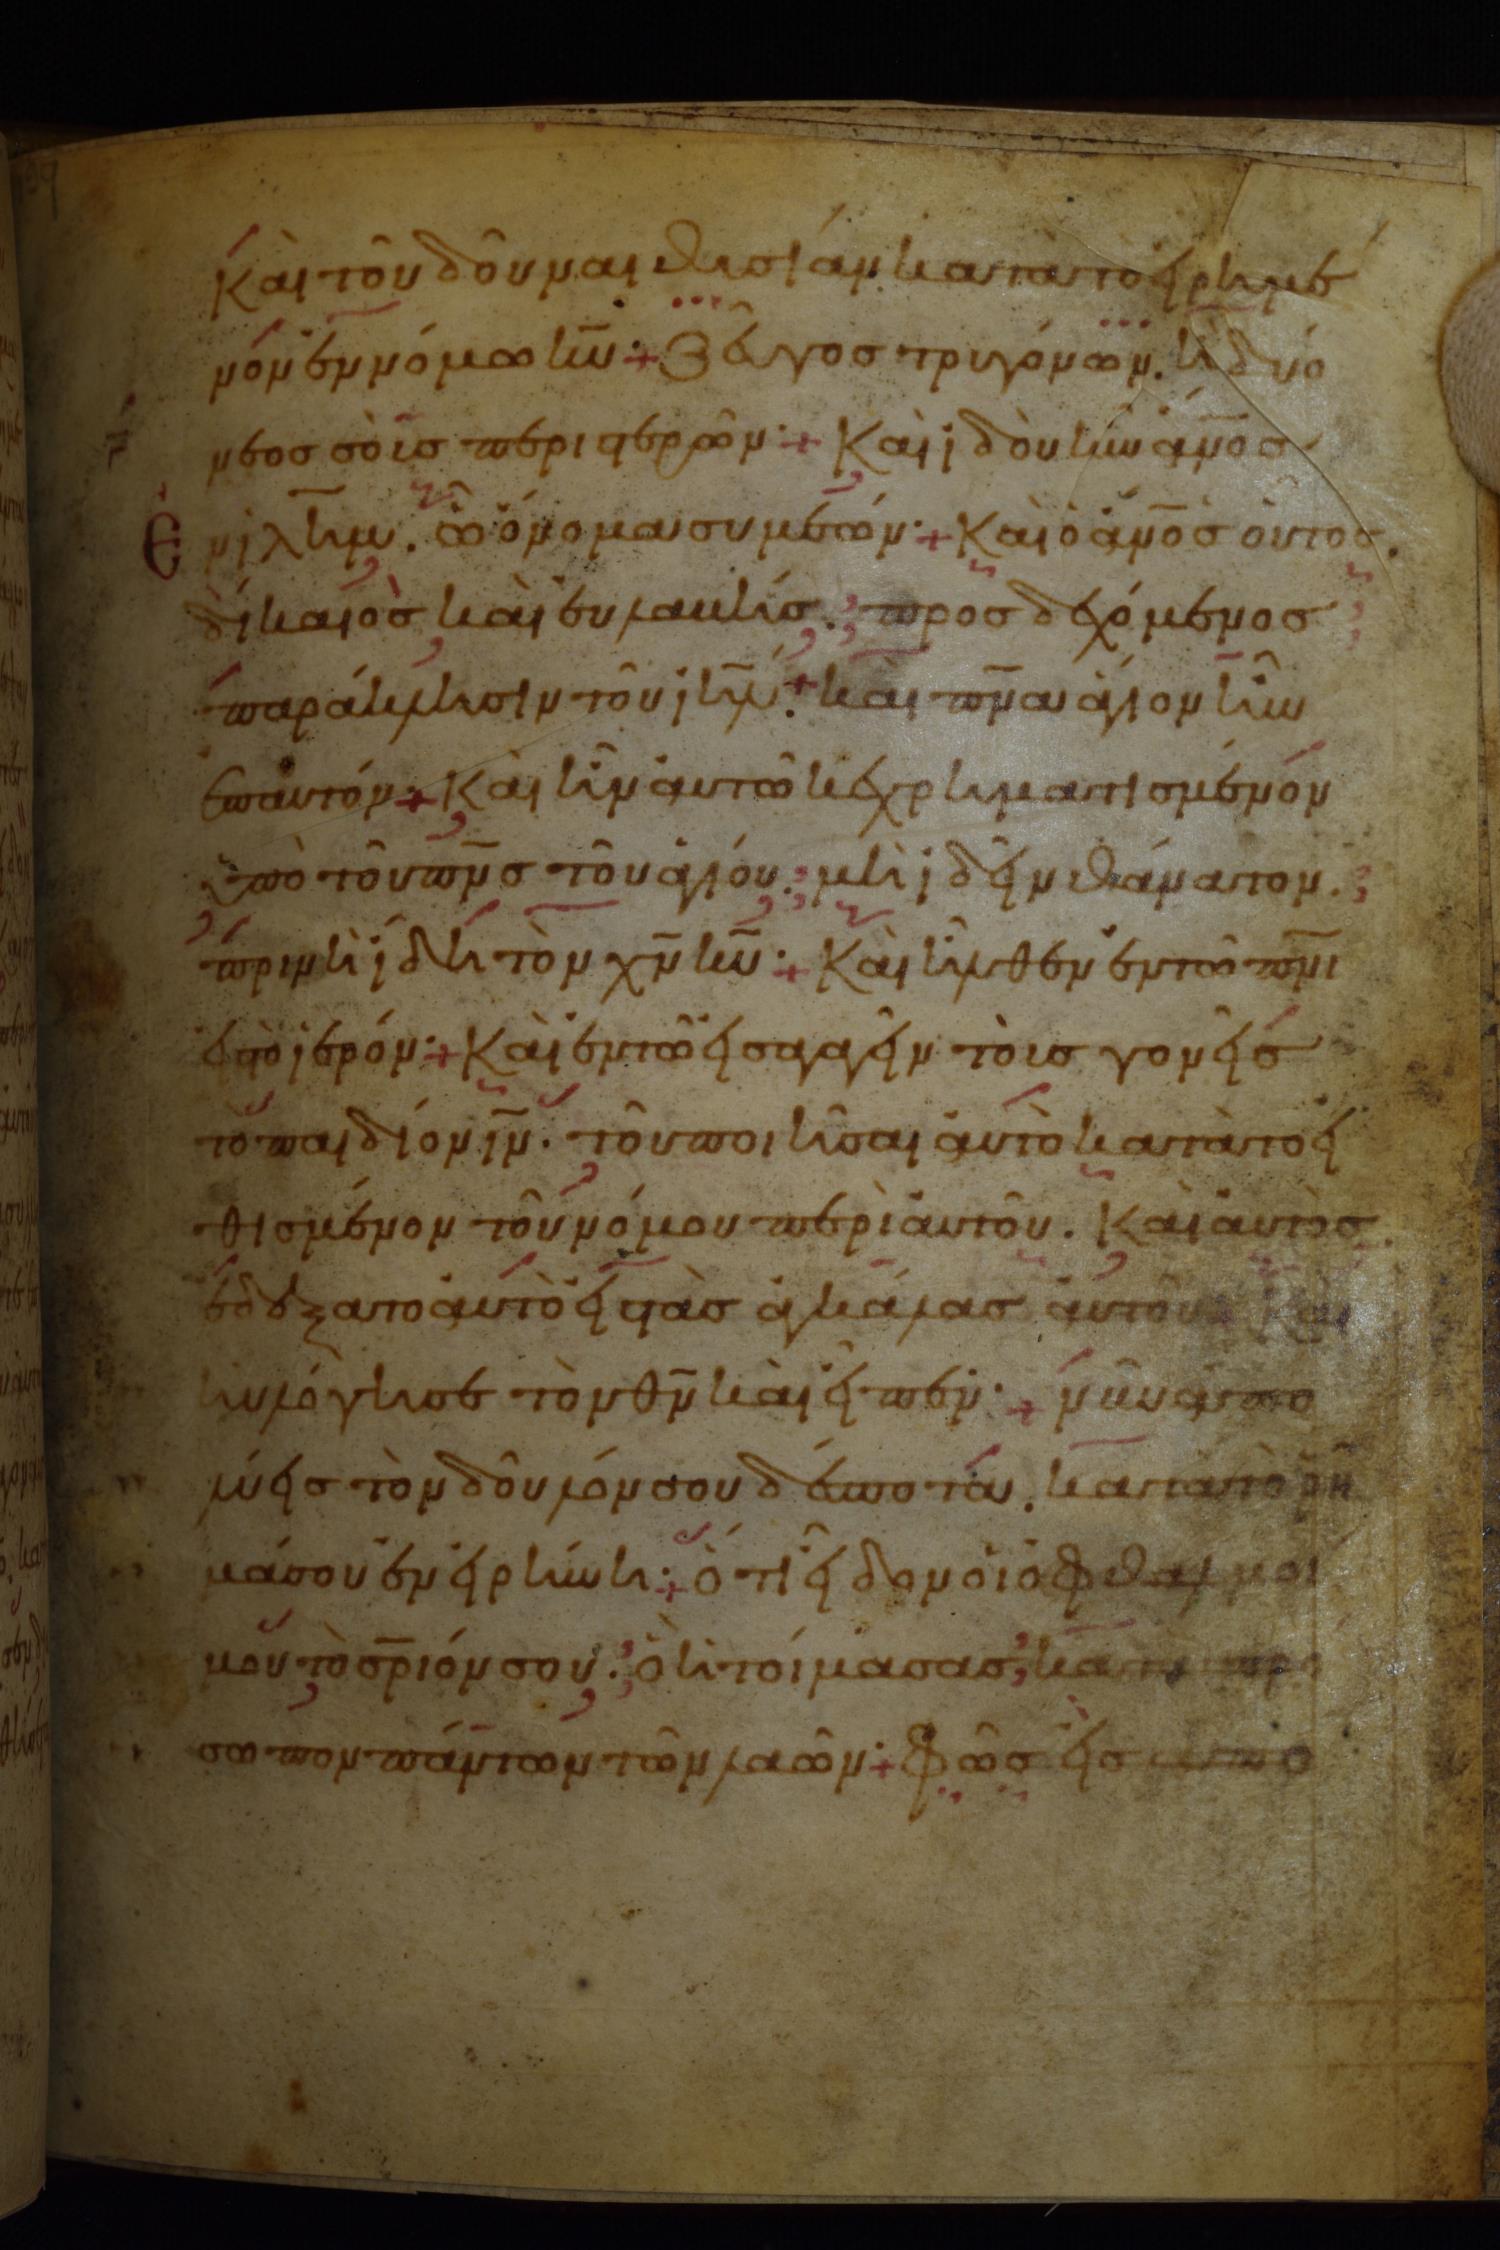 Καὶ τοῦ δοῦναι θυσίαν κατὰ τὸ εἰρημέ
νον ἐν νόμω κ̅υ̅· + Ζεῦγος τρυγόνων. ἢ δύο
νεοσσοὺς περιστερῶν· + Καὶ ἰδοὺ ἦν α̅ν̅ο̅ς
ἐν ἰλ̅η̅μ. ὧ ὄνομα συμεών· + Καὶ ὁ α̅ν̅ο̅ς οὗτος.
δίκαιος καὶ εὐλαβής. προσδεχόμενος
παράκλησιν τοῦ ἰη̅λ· + καὶ π̅ν̅α ἅγιον ἦν
ἐπ αυτόν· + Καὶ ἦν αὐτῶ κεχρηματισμένον
ὑπὸ τοῦ π̅ν̅ς τοῦ ἁγίου. μὴ ἰδεῖν θάνατον.
πρὶν ἢ ἴδη τὸν χ̅ν̅ κ̅υ̅· + Καὶ ἦλθεν ἐν τῶ π̅ν̅ι
εἰς τὸ ἱερόν· + Καὶ ἐν τῶ εἰσαγαγεῖν τοὺς γονεῖς
τὸ παιδίον ι̅ν̅. τοῦ ποιῆσαι αὐτὸ κατὰ τὸ εἰ
θισμένον τοῦ νόμου περὶ αὐτοῦ. Καὶ αὐτὸς
ἐδέξατο αὐτὸ εἰς τὰς ἀγκάλας αὐτοῦ + Καὶ
ηὐλόγησε τὸν θ̅ν̅ καὶ εἶπεν· + νῦν ἀπο
λύεις τὸν δοῦλόν σου δέσποτα. κατὰ τὸ ῥῆ
μά σου ἐν εἰρήνη· + ὅτι εἶδον οἱ ὀφθαλμοί
μου τὸ σ̅ριόν σου. ὃ ἡτοίμασας κατὰ πρό
σωπον πάντων τῶν λαῶν· + φῶς εἰς ἀπο